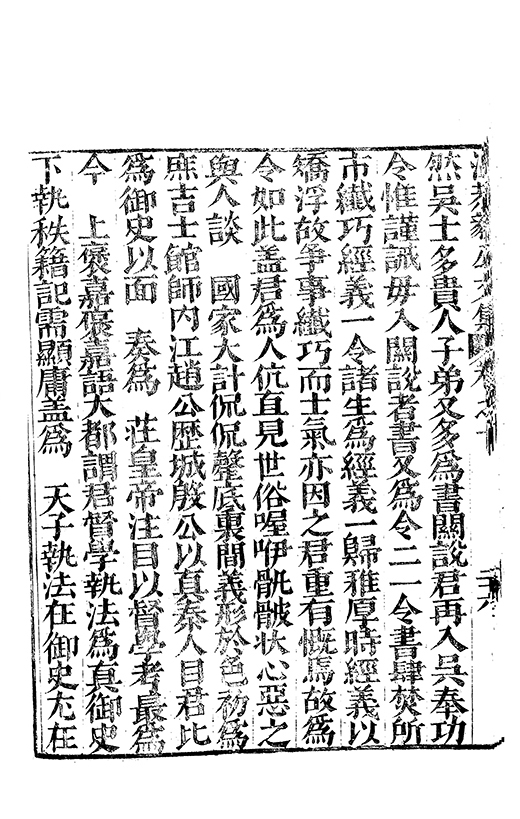 然吳士多貴人子弟又多爲書關說君再入吳奉功
令惟謹誡毋入關說者書又爲令二一令書肆焚所
市纖巧經義一令諸生爲經義一歸雅厚時經義以
矯浮故爭事纖巧而士氣亦因之君重有慨焉故爲
令如此盖君爲人伉直見世俗喔咿骪骳状心惡之
與人談　國家大計侃侃罄底裏間義形於色初爲
庶吉士館師內江趙公歷城殷公以真秦人目君比
爲御史以面　奏爲　莊皇帝注目以督學考最爲
今　上褒嘉褒嘉語大都謂君督學執法爲真御史
下執秩籍記需顯庸盖爲　天子執法在御史尤在